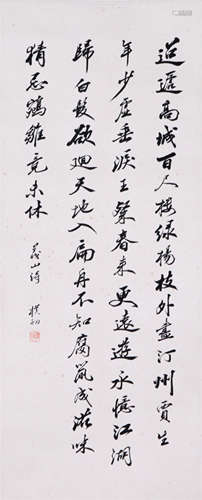 迢遞高城百尺樓綠楊枝外盡汀州賈生
年少虛垂淚王粲春來更遠遊永憶江湖
歸白髮欲迴天地入扁舟不知腐鼠成滋味
猜忌鵷雛竟未休
義山詩 樸初